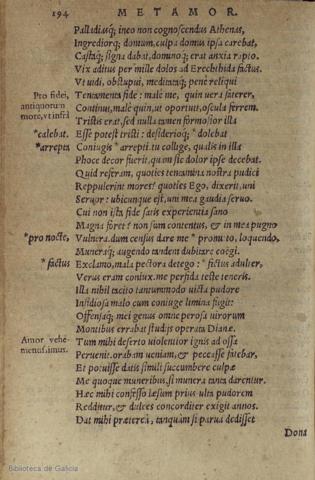 194 METAMOR.
Palladias; ineo non cognoscendus Athenas,
Ingrediorq; domum, culpa domus ipsa carebat,
Castaq; signa dabat, dominoq; erat anxia rapto.
Vix aditus per mille dolos ad Erechthida factus.
Vt uidi, obstupui, meditataq; penè reliqui
Pro fidei, Tentamenta fide: malè me, quin uera faterer,
antiquorum Continui, malè quin, ut oportuit, oscula ferrem.
more, vt infrà Tristis erat, sed nulla tamen formosior illa
*calebat. Esse potest tristi: desiderioq; * dolebat
*arrepta Coniugis * arrepti. tu collige, qualis in illa
Phoce decor fuerit, quam sic dolor ipse decebat.
Quid referam, quoties tentamina nostra pudici
Reppulerint mores? quoties Ego, dixerit, uni
Seruor: ubicunque est, uni mea gaudia seruo.
Cui non ista fide satis experientia sano
Magna foret? non sum contentus, & in mea pugno
*pro nocte, Vulnera. dum census dare me * pro nocte, loquendo,
Muneraq; augendo tandem dubitare coëgi.
* factus Exclamo, mala pectora detego: * fictus adulter,
Verus eram coniux. me perfida teste teneris.
Illa nihil: tacito tantummodo uicta pudore
Insidiosa malo cum coniuge limina fugit:
Offensaq; mei genus omne perosa uirorum
Montibus errabat studijs operata Dianæ.
Amor vehe- Tum mihi deserto uiolentior ignis ad ossa
mentissimus. Peruenit. orabam ueniam, & peccasse fatebar,
Et potuisse datis simili succumbere culpæ
Me quoque muneribus, si munera tanta darentur.
Hæc mihi confesso læsum prius ulta pudorem
Redditur, & dulces concorditer exigit annos.
Dat mihi præterea, tanquam si parua dedisset
Dona
Biblioteca de Galicia